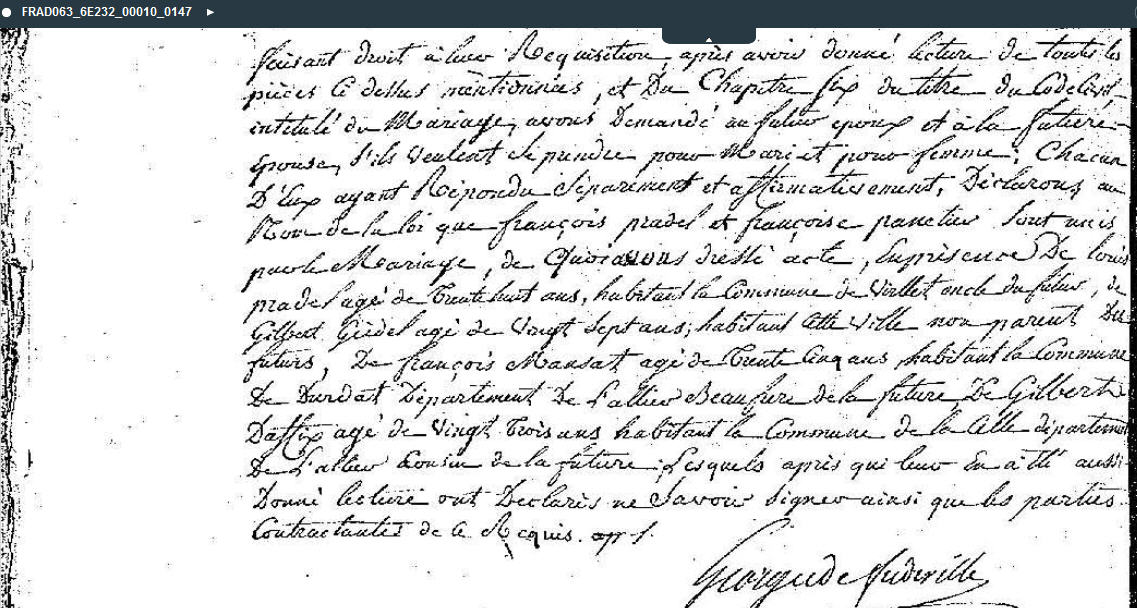 FRAD063_6E232_00010_0147
faisant droit à leur Requisition, après avoir donné lecture de toutes les
pièces Ci dessus mentionnées, et Du Chapitre six du titre du Code Civil
intitulé du Mariage, avons Demandé au futur epoux et à la future
Epouse, s'ils veulent se prendre pour Mari et pour femme; Chacun
D'Eux ayant Répondu Séparément et affirmativement, Déclarons au
Nom de la loi que françois pradel et françoise panetier sont unis
par le Mariage, de Quoi avons dressé acte, En présence De louis
pradel agé de Trente huit ans, habitant la Commune de Virlet oncle du futur, de
Gilbert agé de Vingt Sept ans, habitant Cette Ville non parent Des
futurs, De françois Mansat agé de Trente Cinq ans, habitant la Commune
De Durdat Département De l'allier Beaufrere de la future De Gilbert
Daffix agé de Vingt Trois ans habitant la Commune de la Celle département
De l'allier Cousin de la future; Lesquels après qu'il leur En a été aussi
Donné lecture ont Declarés ne Savoir signer ainsi que les parties
Contractantes de ce Requis. 
George de